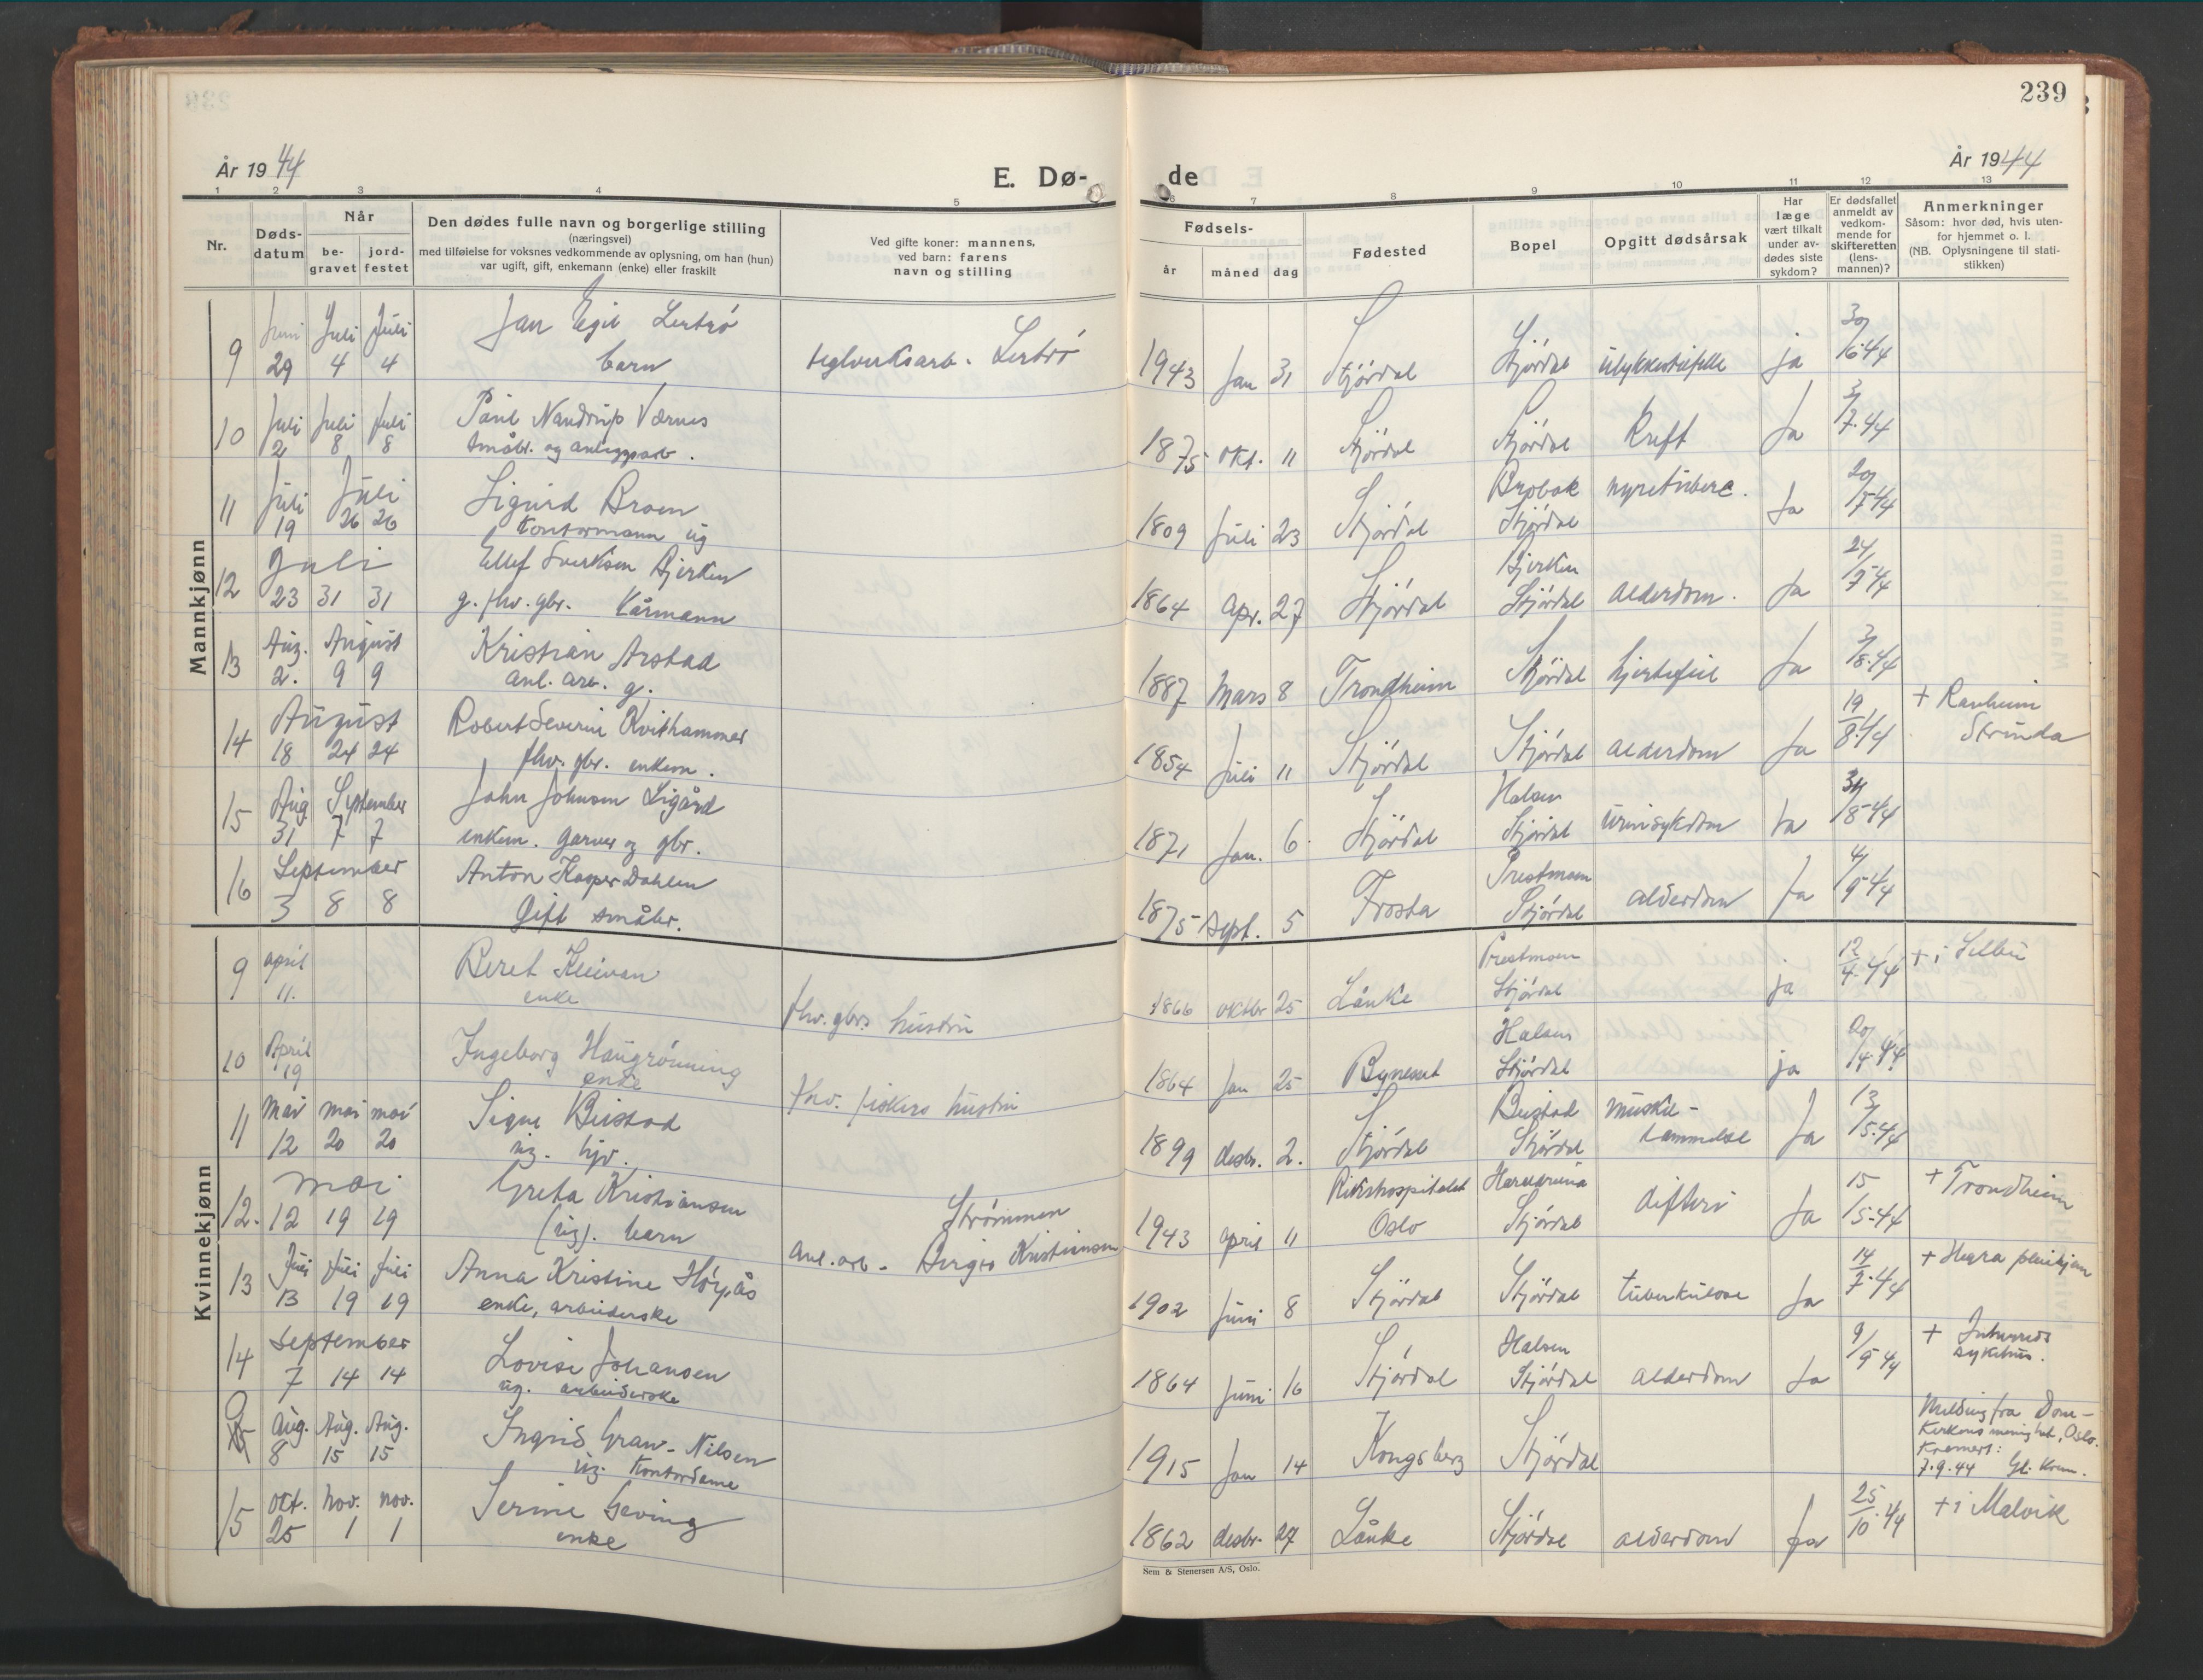 239
År 1944
E. Dø- de
År 1944
1 2 3 4 5 6 7 8 9 10 11 12 13
Nr.
Døds-
datum
Når
be-
gravet
jord-
festet
Den dødes fulle navn og borgerlige stilling
(næringsvei)
med tilføielse for voksnes vedkommende av oplysning, om han (hun)
var ugift, gift, enkemann (enke) eller fraskilt
Ved gifte koner: mannens,
ved barn: farens
navn og stilling
Fødsels-
år måned dag
Fødested
Bopel
Opgitt dødsårsak
Har
læge
vært tilkalt
under av-
dødes siste
sykdom?
Er dødsfallet
anmeldt av
vedkom-
mende for
skifteretten
(lens-
mannen)?
Anmerkninger
Såsom: hvor død, hvis uten-
for hjemmet o. l.
(NB. Oplysningene til stati-
stikken)
Mannkjønn
9 Juni 29 Juli 4 Juli 4 Jan Egil Lertrö
barn
teglverksarb. Lertrö
1943 Jan 31 Stjördal Stjördal ulykkestilfelle ja 30/6-44
10 Juli 2 Juli 8 Juli 8 Paul Nandrup Værnes
småbr. og anleggsarb.
1875 okt. 11 Stjördal Stjördal Kreft Ja 3/7-44
11 Juli 19 Juli 26 26 Sigurd Braen
Kontormann ug
1809 Juli 23 Stjördal Stjördal nyretuberc. Ja 20/7-44
12 Juli 23 31 31 Ellef Sverksen Bjerken
g. fhv. gbr. Kårmann
1864 Apr. 27 Stjördal Bjerken
Stjördal alderdom. Ja 24/7-44
13 Aug. 2. August 9 9 Kristian Arstad
anl. arb. g.
1887 Mars 8 Trondheim Stjördal hjertefeil Ja 3/8-44
14 August 18 24 24 Robert Severin Kvithammer
fhv. gbr. enkem.
1854 Juli 11 Stjördal Stjördal alderdom Ja 19/8-44 + Ranheim
Strinda
15 Aug 31 September 7 7 John Johnsen Ligård
enkem. garver og gbr.
1871 Jan. 6 Stjördal Halsen
Stjördal urinsykdom Ja 31/8-44
16 September 3 8 8 Anton Kasper Dahlen
Gift småbr.
1875 Sept. 5 Frosta Prestmoen
Stjördal alderdom Ja 4/9-44
Kvinnekjønn
9 april 11. Beret Kleivan
enke
fhv. gbrs hustru
1866 oktbr 25 Lånke Prestmoen
Stjördal ja 12/4-44 + i Selbu
10 April 19 Ingeborg Haugrönning
enke
fhv. fiskers hustru
1864 Jan 25 Bynesset Halsen
Stjördal ja 20/4-44
11 Mai 12 mai 20 mai 20 Signe Beistad
ug. hjv.
1899 desbr. 2. Stjördal Beistad
Stjördal Muskel-
lammelse Ja 13/5-44
12. mai 12 19 19 Greta Kristiansen
(ug). barn
Strömmen
Anl. arb. Birger Kristiansen
1943 april 11 Rikshospitalet
Oslo Stjördal difteri Ja 15/5-44 + Trondheim
13 Juli 13 Juli 19 Juli 19 Anna Kristine Höyås
enke, arbeiderske
1902 Juni 8 Stjördal Stjördal tuberkulose Ja 14/7-44 + Hegra pleiehjem
14 September 7 14 14 Lovise Johansen
ug. arbeiderske
1864 Juni 16 Stjördal Halsen
Stjördal alderdom Ja 9/9-44 + Innherreds
sykehus.
0 Aug. 8 Aug. 15 Aug. 15 Ingrid Graw-Nilsen
ug. Kontordame
1915 Jan 14 Kongsberg Stjördal
Melding fra Dom-
kirkens menighet, Oslo.
Kremert:
7.9.44 Gl. Krem.
15 Okt. 25 Nov. 1 nov. 1 Serine Geving
enke
1862 desbr. 27 Lånke Stjördal alderdom Ja 25/10-44 + i Malvik
Sem & Stenersen A/S, Oslo.